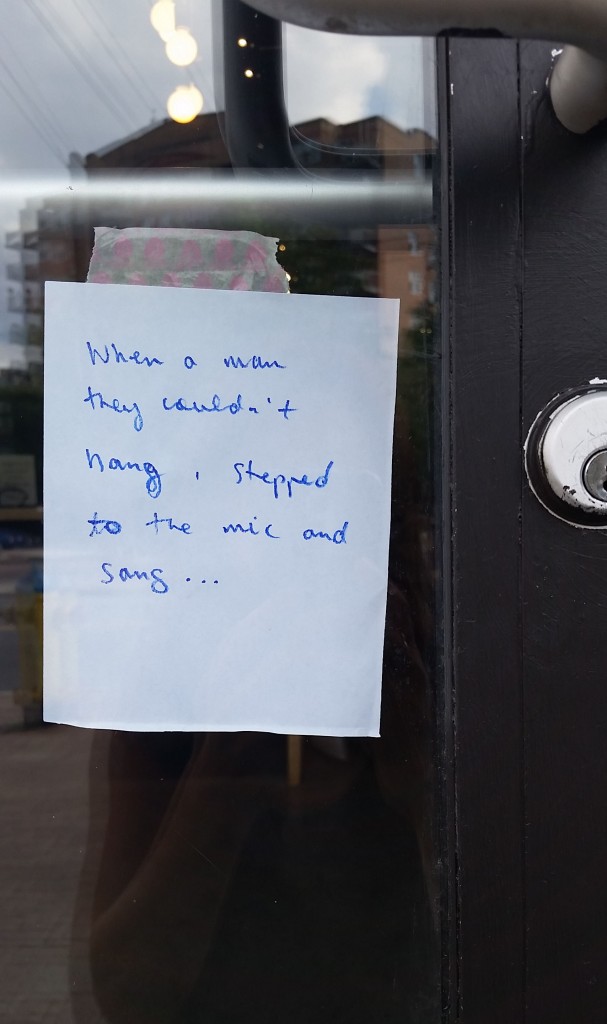 When a man
they couldn't
hang, stepped
to the mic and
sang...